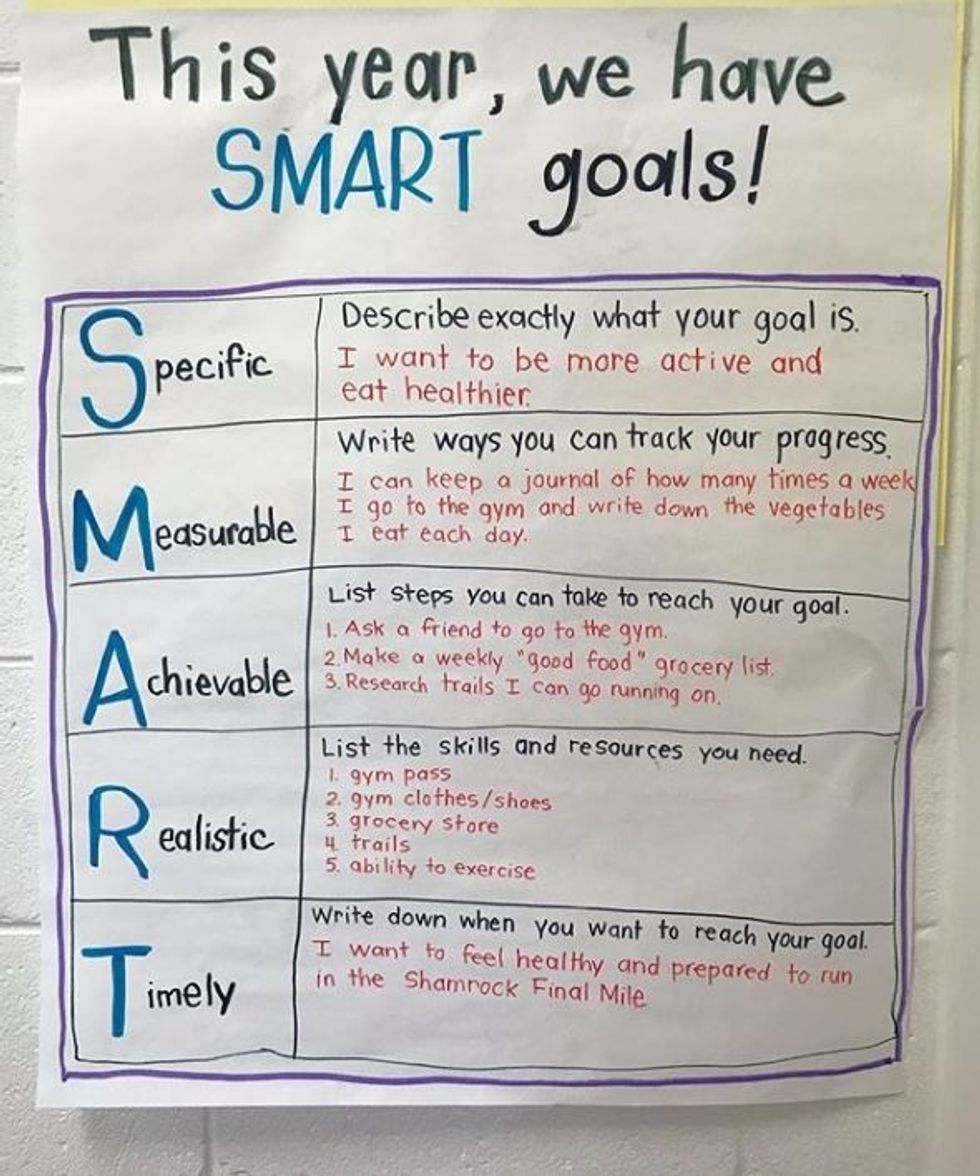 This year, we have
SMART goals!
Specific
Describe exactly what your goal is.
I want to be more active and
eat healthier.
Measurable
Write ways you can track your progress.
I can keep a journal of how many times a week
I go to the gym and write down the vegetables
I eat each day.
Achievable
List steps you can take to reach your goal.
1. Ask a friend to go to the gym.
2. Make a weekly "good food" grocery list.
3. Research trails I can go running on.
Realistic
List the skills and resources you need.
1. gym pass
2. gym clothes/shoes
3. grocery store
4. trails
5. ability to exercise
Timely
Write down when you want to reach your goal.
I want to feel healthy and prepared to run
in the Shamrock Final Mile